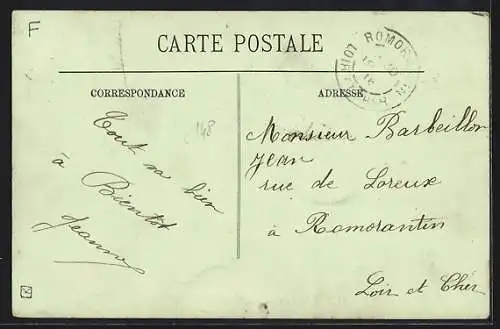 F
CARTE POSTALE
CORRESPONDANCE
ADRESSE
148
Tout va bien
à Bientot
Jeanne
Monsieur Barbeillon
Jean
rue de Loreux
à Romorantin
Loir et Cher